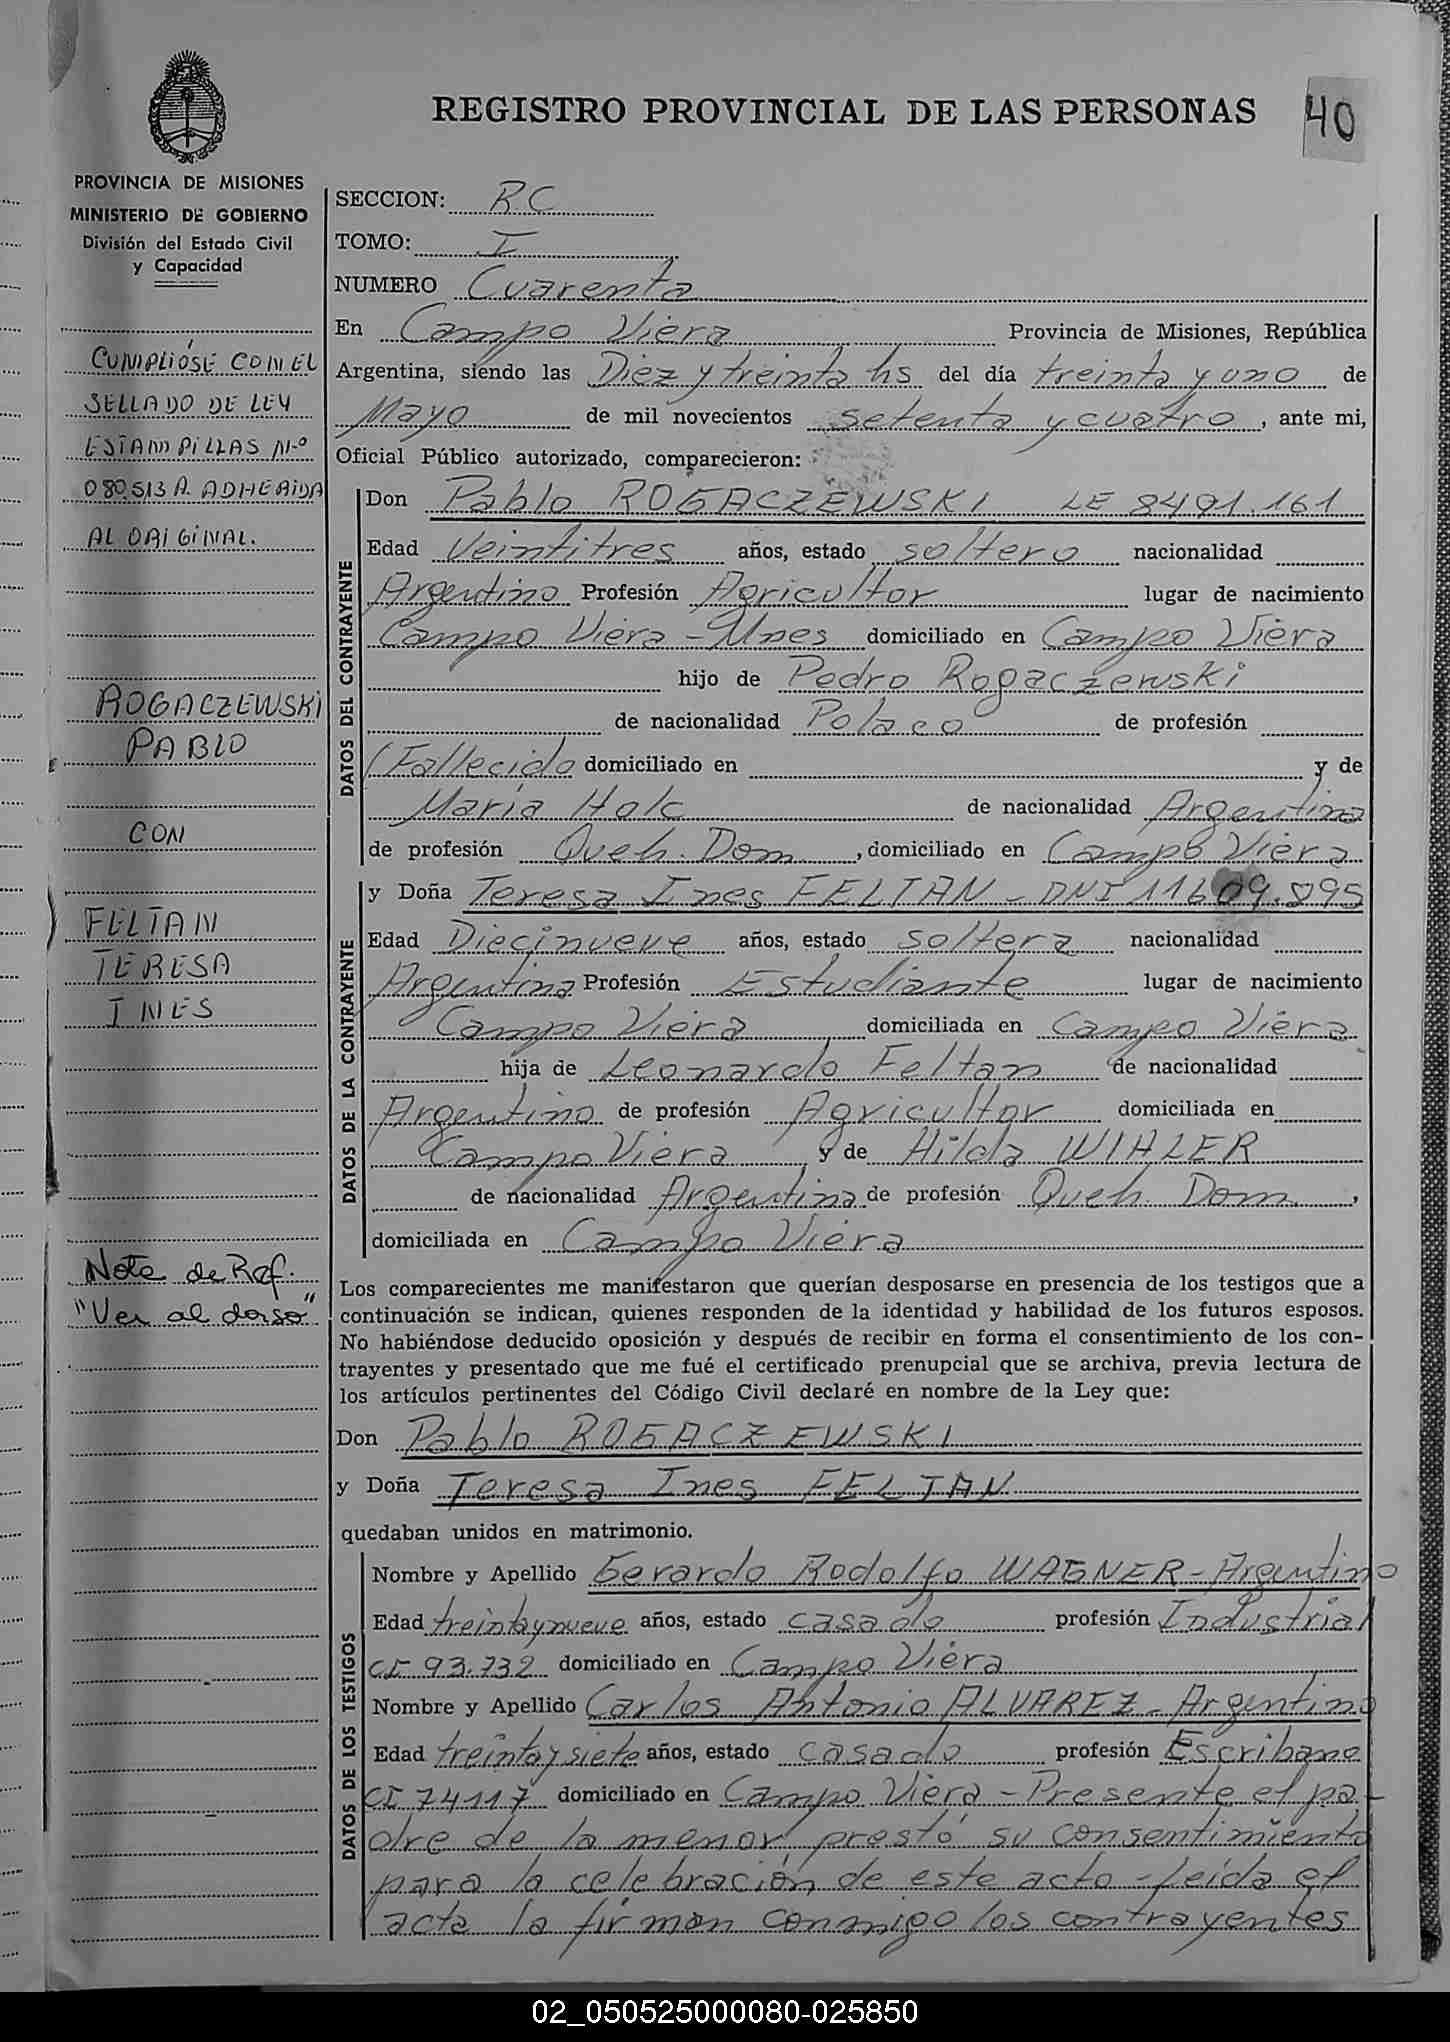 REGISTRO PROVINCIAL DE LAS PERSONAS
40
PROVINCIA DE MISIONES
MINISTERIO DE GOBIERNO
División del Estado Civil
y Capacidad
CUMPLIÓSE CON EL
SELLADO DE LEY
ESTAMPILLAS Nº
080.513 A. ADHERIDA
AL ORIGINAL.
ROGACZEWSKI
PABLO
CON
FELTAN
TERESA
INES
Note de Ref.
"Ver al dorso"
SECCION: R.C
TOMO: I
NUMERO Cuarenta
En Campo Viera Provincia de Misiones, República
Argentina, siendo las Diez y treinta hs del día treinta y uno de
Mayo de mil novecientos setenta y cuatro, ante mi,
Oficial Público autorizado, comparecieron:
DATOS DEL CONTRAYENTE
Don Pablo ROGACZEWSKI LE 8491.161
Edad Veintitres años, estado soltero nacionalidad
Argentino Profesión Agricultor lugar de nacimiento
Campo Viera - Mnes domiciliado en Campo Viera
hijo de Pedro Rogaczewski
de nacionalidad Polaco de profesión
(Fallecido domiciliado en y de
Maria Holc de nacionalidad Argentina
de profesión Queh. Dom. , domiciliado en Campo Viera
DATOS DE LA CONTRAYENTE
y Doña Teresa Ines FELTAN - DNI 11609.895
Edad Diecinueve años, estado soltera nacionalidad
Argentina Profesión Estudiante lugar de nacimiento
Campo Viera domiciliada en Campo Viera
hija de Leonardo Feltan de nacionalidad
Argentino de profesión Agricultor domiciliada en
Campo Viera y de Hilda WIHLER
de nacionalidad Argentina de profesión Queh. Dom. ,
domiciliada en Campo Viera
Los comparecientes me manifestaron que querían desposarse en presencia de los testigos que a
continuación se indican, quienes responden de la identidad y habilidad de los futuros esposos.
No habiéndose deducido oposición y después de recibir en forma el consentimiento de los con-
trayentes y presentado que me fué el certificado prenupcial que se archiva, previa lectura de
los artículos pertinentes del Código Civil declaré en nombre de la Ley que:
Don Pablo ROGACZEWSKI
y Doña Teresa Ines FELTAN
quedaban unidos en matrimonio.
DATOS DE LOS TESTIGOS
Nombre y Apellido Gerardo Rodolfo WAGNER - Argentino
Edad treinta y nueve años, estado casado profesión Industrial
CI 93.732 domiciliado en Campo Viera
Nombre y Apellido Carlos Antonio ALVAREZ - Argentino
Edad treinta y siete años, estado casado profesión Escribano
CI 74117 domiciliado en Campo Viera - Presente el pa-
dre de la menor, prestó su consentimiento
para la celebración de este acto - Leida el
acta la firman conmigo los contrayentes
02_050525000080-025850